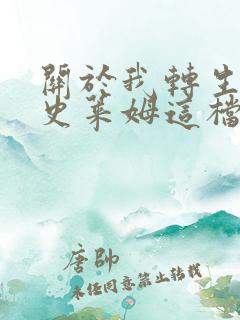 關於我轉生
史萊姆這檔
唐帥
未經同意禁止轉載